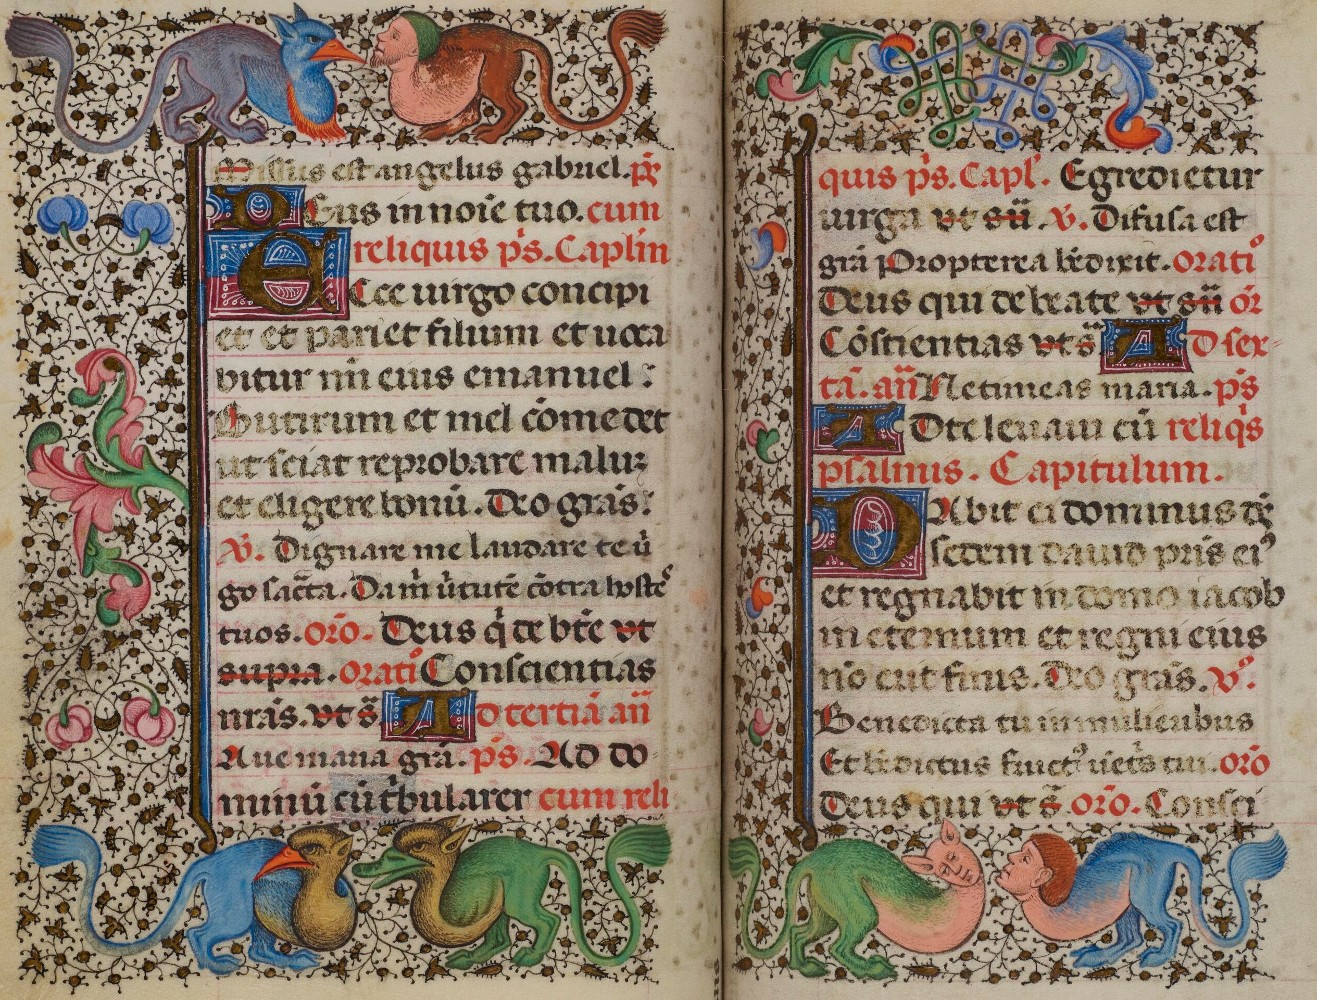 Missus est angelus gabriel. ps̄
Deus in noīe tuo. cum
reliquis ps̄. Caplīn
Ecce uirgo concipi
et et pariet filium et uoca
bitur nn̄ eius emanuel:
Butirum et mel cōmedet
ut sciat reprobare maluʒ
et eligere bonū. Deo grās:
v̄. Dignare me laudare te ū
go sac̄ta. Da m̄ ūtutē cōtra hostes
tuos. orō. Deus q̄ de btē vt
supra. oratio Conscientias
nrās. vt s̄ Ad tertiā an̄
Aue maria grā. ps̄. Ad do
minū cū tbularer cum reli
quis ps̄. Capl̄. Egredietur
uirga vt sū v̄. Difusa est
grā Propterea bēdixit. oratio
Deus qui de beate vt sū or̄
Cōscientias vt s̄ Ad sex-
tā. an̄ Ne timeas maria. ps̄
Ad te leuaui cū reliqs̄
psalmis. Capitulum.
Dabit ei dominus d̄s
sedem dauid pris̄ ei9
et regnabit in domo iacob
in eternum et regni eius
nō erit finis. Deo grās. v̄.
Benedicta tu in mulieribus
Et bēdictus fruct9 uēts tui. orō
Deus qui vt s̄ orō. Consci